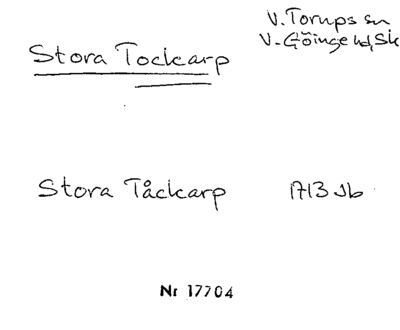 V. Torups sn
V. Göinge hd, Sk
Stora Tockarp
Stora Tåckarp 1713 Jb
Nr 17704